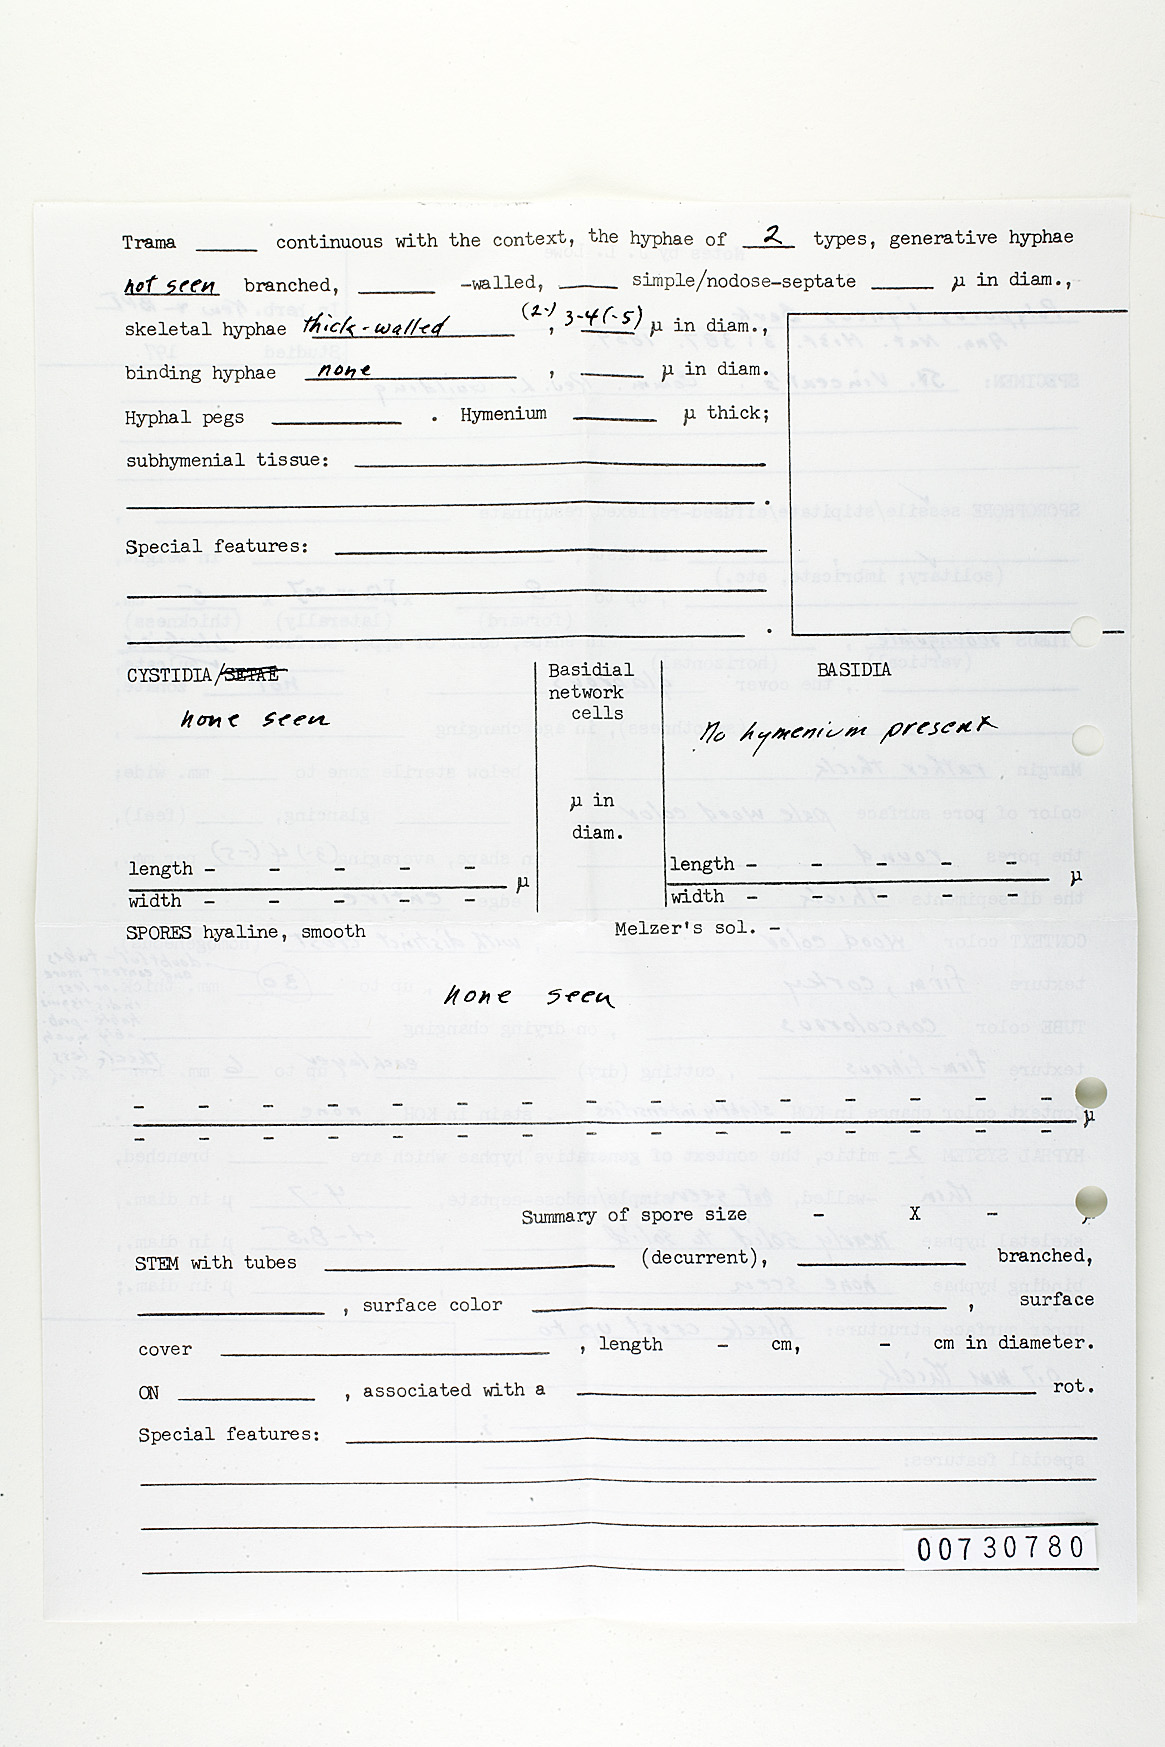 Trama _____ continuous with the context, the hyphae of 2 types, generative hyphae
not seen branched, _____ -walled, _____ simple/nodose-septate _____ µ in diam.,
skeletal hyphae thick-walled , (2-) 3-4 (-5) µ in diam.,
binding hyphae none , _____ µ in diam.
Hyphal pegs _____ . Hymenium _____ µ thick;
subhymenial tissue: _____
_____ .
Special features: _____
_____ .
CYSTIDIA/SETAE
none seen
length - - - - -
width - - - - -
µ
Basidial
network
cells
µ in
diam.
BASIDIA
No hymenium present
length - - - - -
width - - - - -
µ
SPORES hyaline, smooth Melzer's sol. -
none seen
- - - - - - - - - - - - - - -
µ
- - - - - - - - - - - - - - -
Summary of spore size - X -
STEM with tubes _____ (decurrent), _____ branched,
_____ , surface color _____ , surface
cover _____ , length - cm, - cm in diameter.
ON _____ , associated with a _____ rot.
Special features: _____
00730780